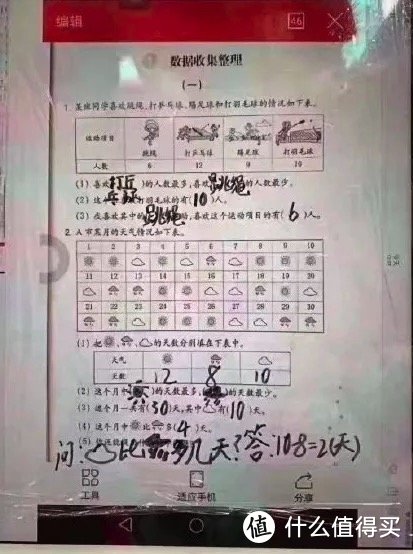 编辑
46
数据收集整理
(一)
1. 某班同学喜欢跳绳、打乒乓球、踢足球和打羽毛球的情况如下表。
运动项目 跳绳 打乒乓球 踢足球 打羽毛球
人数 6 12 9 10
(1) 喜欢(打乒乓)的人数最多,喜欢(跳绳)的人数最少。
(2) 这 打羽毛球的有(10)人。
(3) 在喜欢其中的(跳绳) ,喜欢这个运动项目的有(6)人。
2. A市某月的天气情况如下表。
1 2 3 4 5 6 7 8 9 10
11 12 13 14 15 16 17 18 19 20
21 22 23 24 25 26 27 28 29 30
(1) 把 、 、 的天数分别填在下表中。
天气
天数 12 8 10
(2) 这个月中 的天数最多, 的天数最少。
(3) 这个月一共有(30)天,其中 有(10)天。
(4) 这个月中 比 多(4)天。
(5)
问: 比 多几天?答:10-8=2(天)
工具 适应手机 分享
值 什么值得买